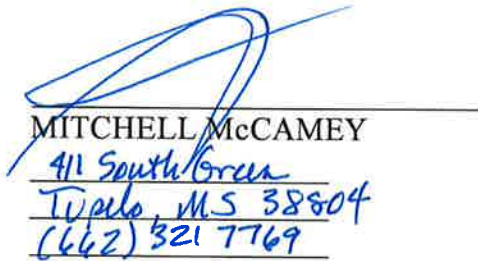 MITCHELL McCAMEY
411 South Green
Tupelo, MS 38804
(662) 321 7769